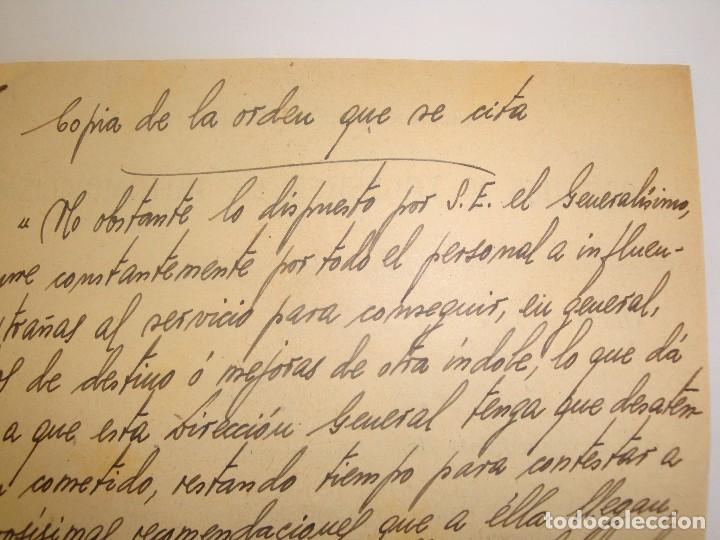 Copia de la orden que se cita
"No obstante lo dispuesto por S.E. el Generalísimo,
constantemente por todo el personal a influen-
trañas al servicio para conseguir, en general,
de destino ó mejoras de otra índole, lo que dá
a que esta Dirección General tenga que desaten-
cometido, restando tiempo para contestar a
recomendaciones que a élla llegan,
todocoleccion.net